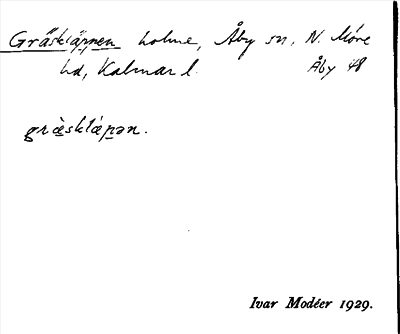 Gräskläppen holme, Åby sn, N. Möre
hd, Kalmar l. Åby 48
græ̀sklápən.
Ivar Modéer 1929.